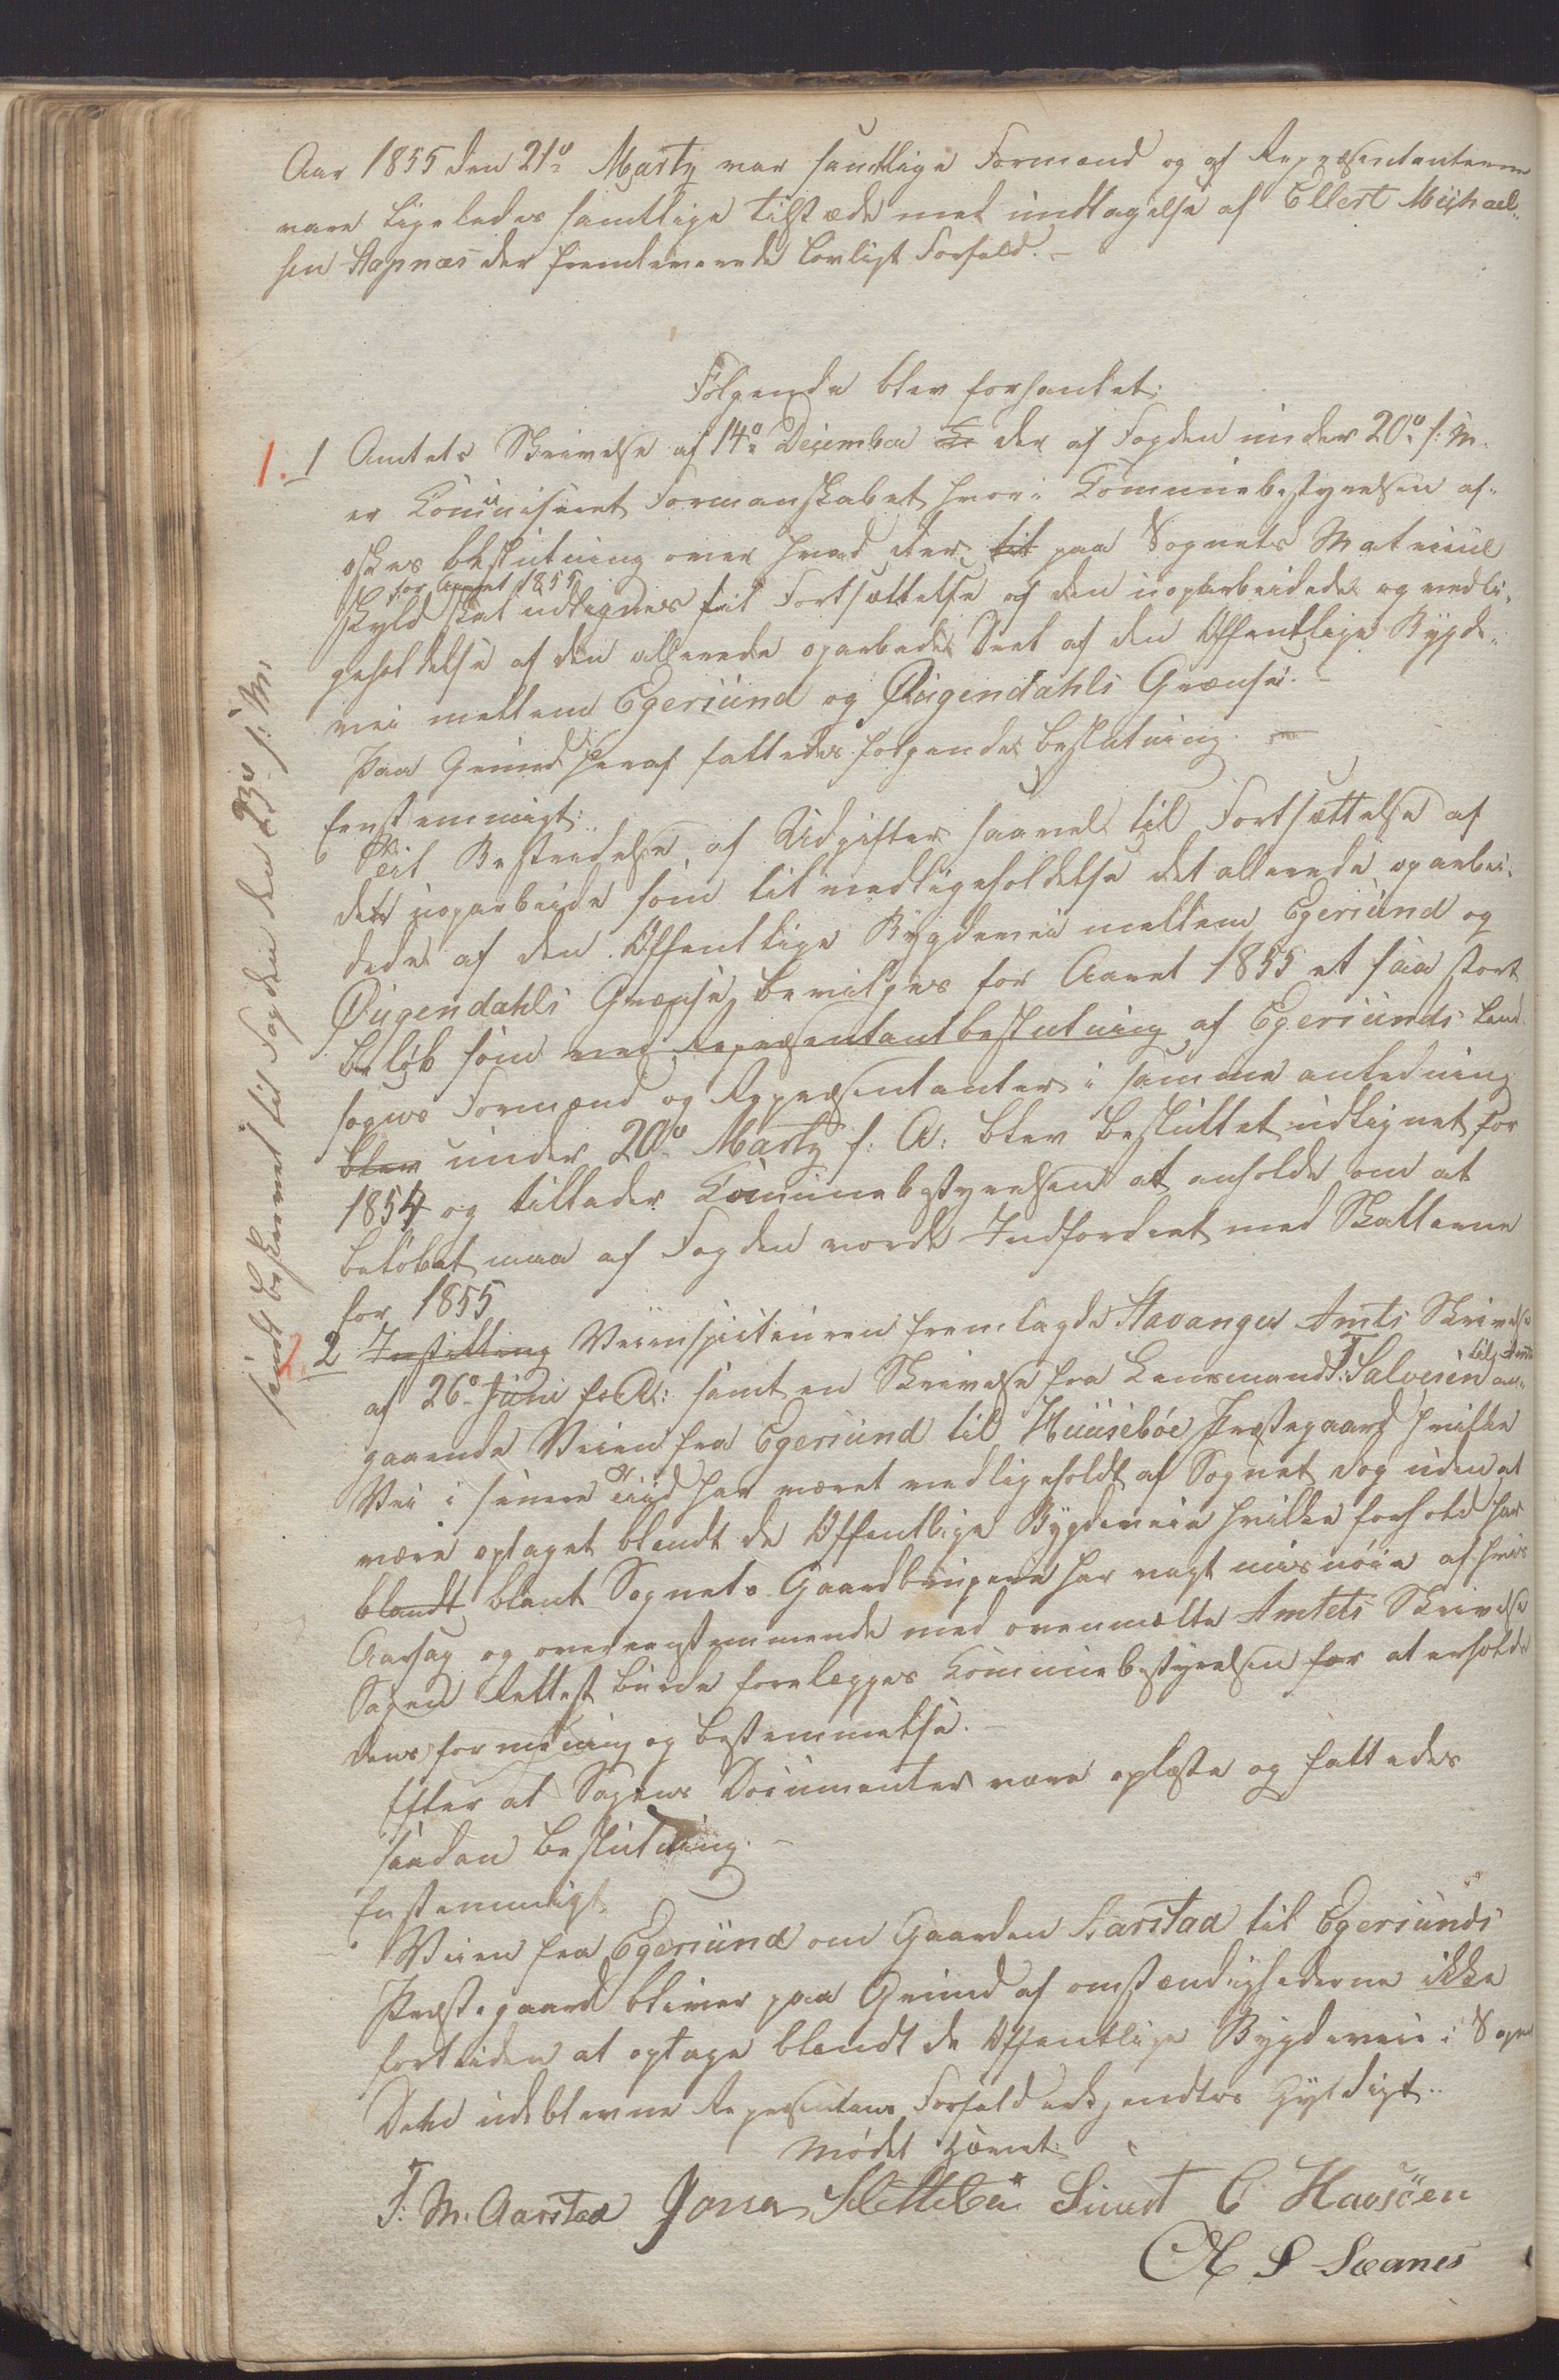 Aar 1855 den 21º Marty var samtlige Formænd og af Repræsentanterne
vare ligeledes samtlige tilstæde med undtagelse af Ellert Michael-
sen Hapnæs der fremleverede lovligt Forfald. -
Følgende blev forhandlet:
1. 1 Amtets Skrivelse af 14º December der af Fogden under 20º f: M.
er Comuniseret Formandskabet hvori Comunebestyrelsen af-
æskes beslutning over hvad der til paa Sognets Matricul
for Aaret 1855
Skyld skal udlignes til Fortsættelse af den uoparbeidede og vedli-
geholdelse af den allerede oparbeidede Deel af den Offentlige Bygde-
vei mellem Egersund og Øiigendahls Grænse. -
Paa Grund heraf fattedes følgende beslutning. -
Eenstemmigt:
Til Bestridelse af Udgifter saavel til Fortsættelse af
det uoparbeide som til vedligeholdelse det allerede oparbei-
dede af den Offentlige Bygdevei mellem Egersund og
Øiigendahls Grænse, bevilges for Aaret 1855 et saa stort
beløb som ved Repræsentantbeslutning af Egersunds Land-
sogns Formænd og Repræsentanter i samme anledning
blev under 20º Marty f: A: blev besluttet udlignet for
1854 og tillader Comunebestyrelsen at anholde om at
beløbet maa af Fogden vorde Indfordret med Skatterne
for 1855
2. 2 Instilling Veiinspecteuren fremlagde Stavanger Amts Skrivelse
af 26º Juni f: A: samt en Skrivelse fra Lensmand T. Salvesen til Amtet an-
gaaende Veien fra Egersund til Huusebøe Prestegaard hvilke
Vei i sinere Tiid har været vedligeholdt af Sognet dog uden at
være optaget blandt de Offentlige Bygdeveie hvilke forhold har
blandt blant Sognets Gaardbrugere har vagt misnøie af hvis
Aarsag og overeenstemmende med ovenmelte Amtets Skrivelse
Sagen Rettest burde forelægges Comunebestyrelsen for at erholde
dens formening og bestemmelse. -
Efter at Sagens Documenter vare oplæste og fattedes
saadan beslutning. -
Enstemmigt
Veien fra Egersund om Gaarden Aarstad til Egersunds
Prestegaard bliver paa Grund af omstændighederne ikke
fortiden at optage blandt de Offentlige Bygdeveie i Sognet
Den udeblevne Representans Forfald ankjendtes Gyldigt.
Mødet hævet.
T. M. Aarstad Jonas Slettebøe Sivert C Havsøen
O S Seanes
sendt beskrevet til Fogden den 23º f: M